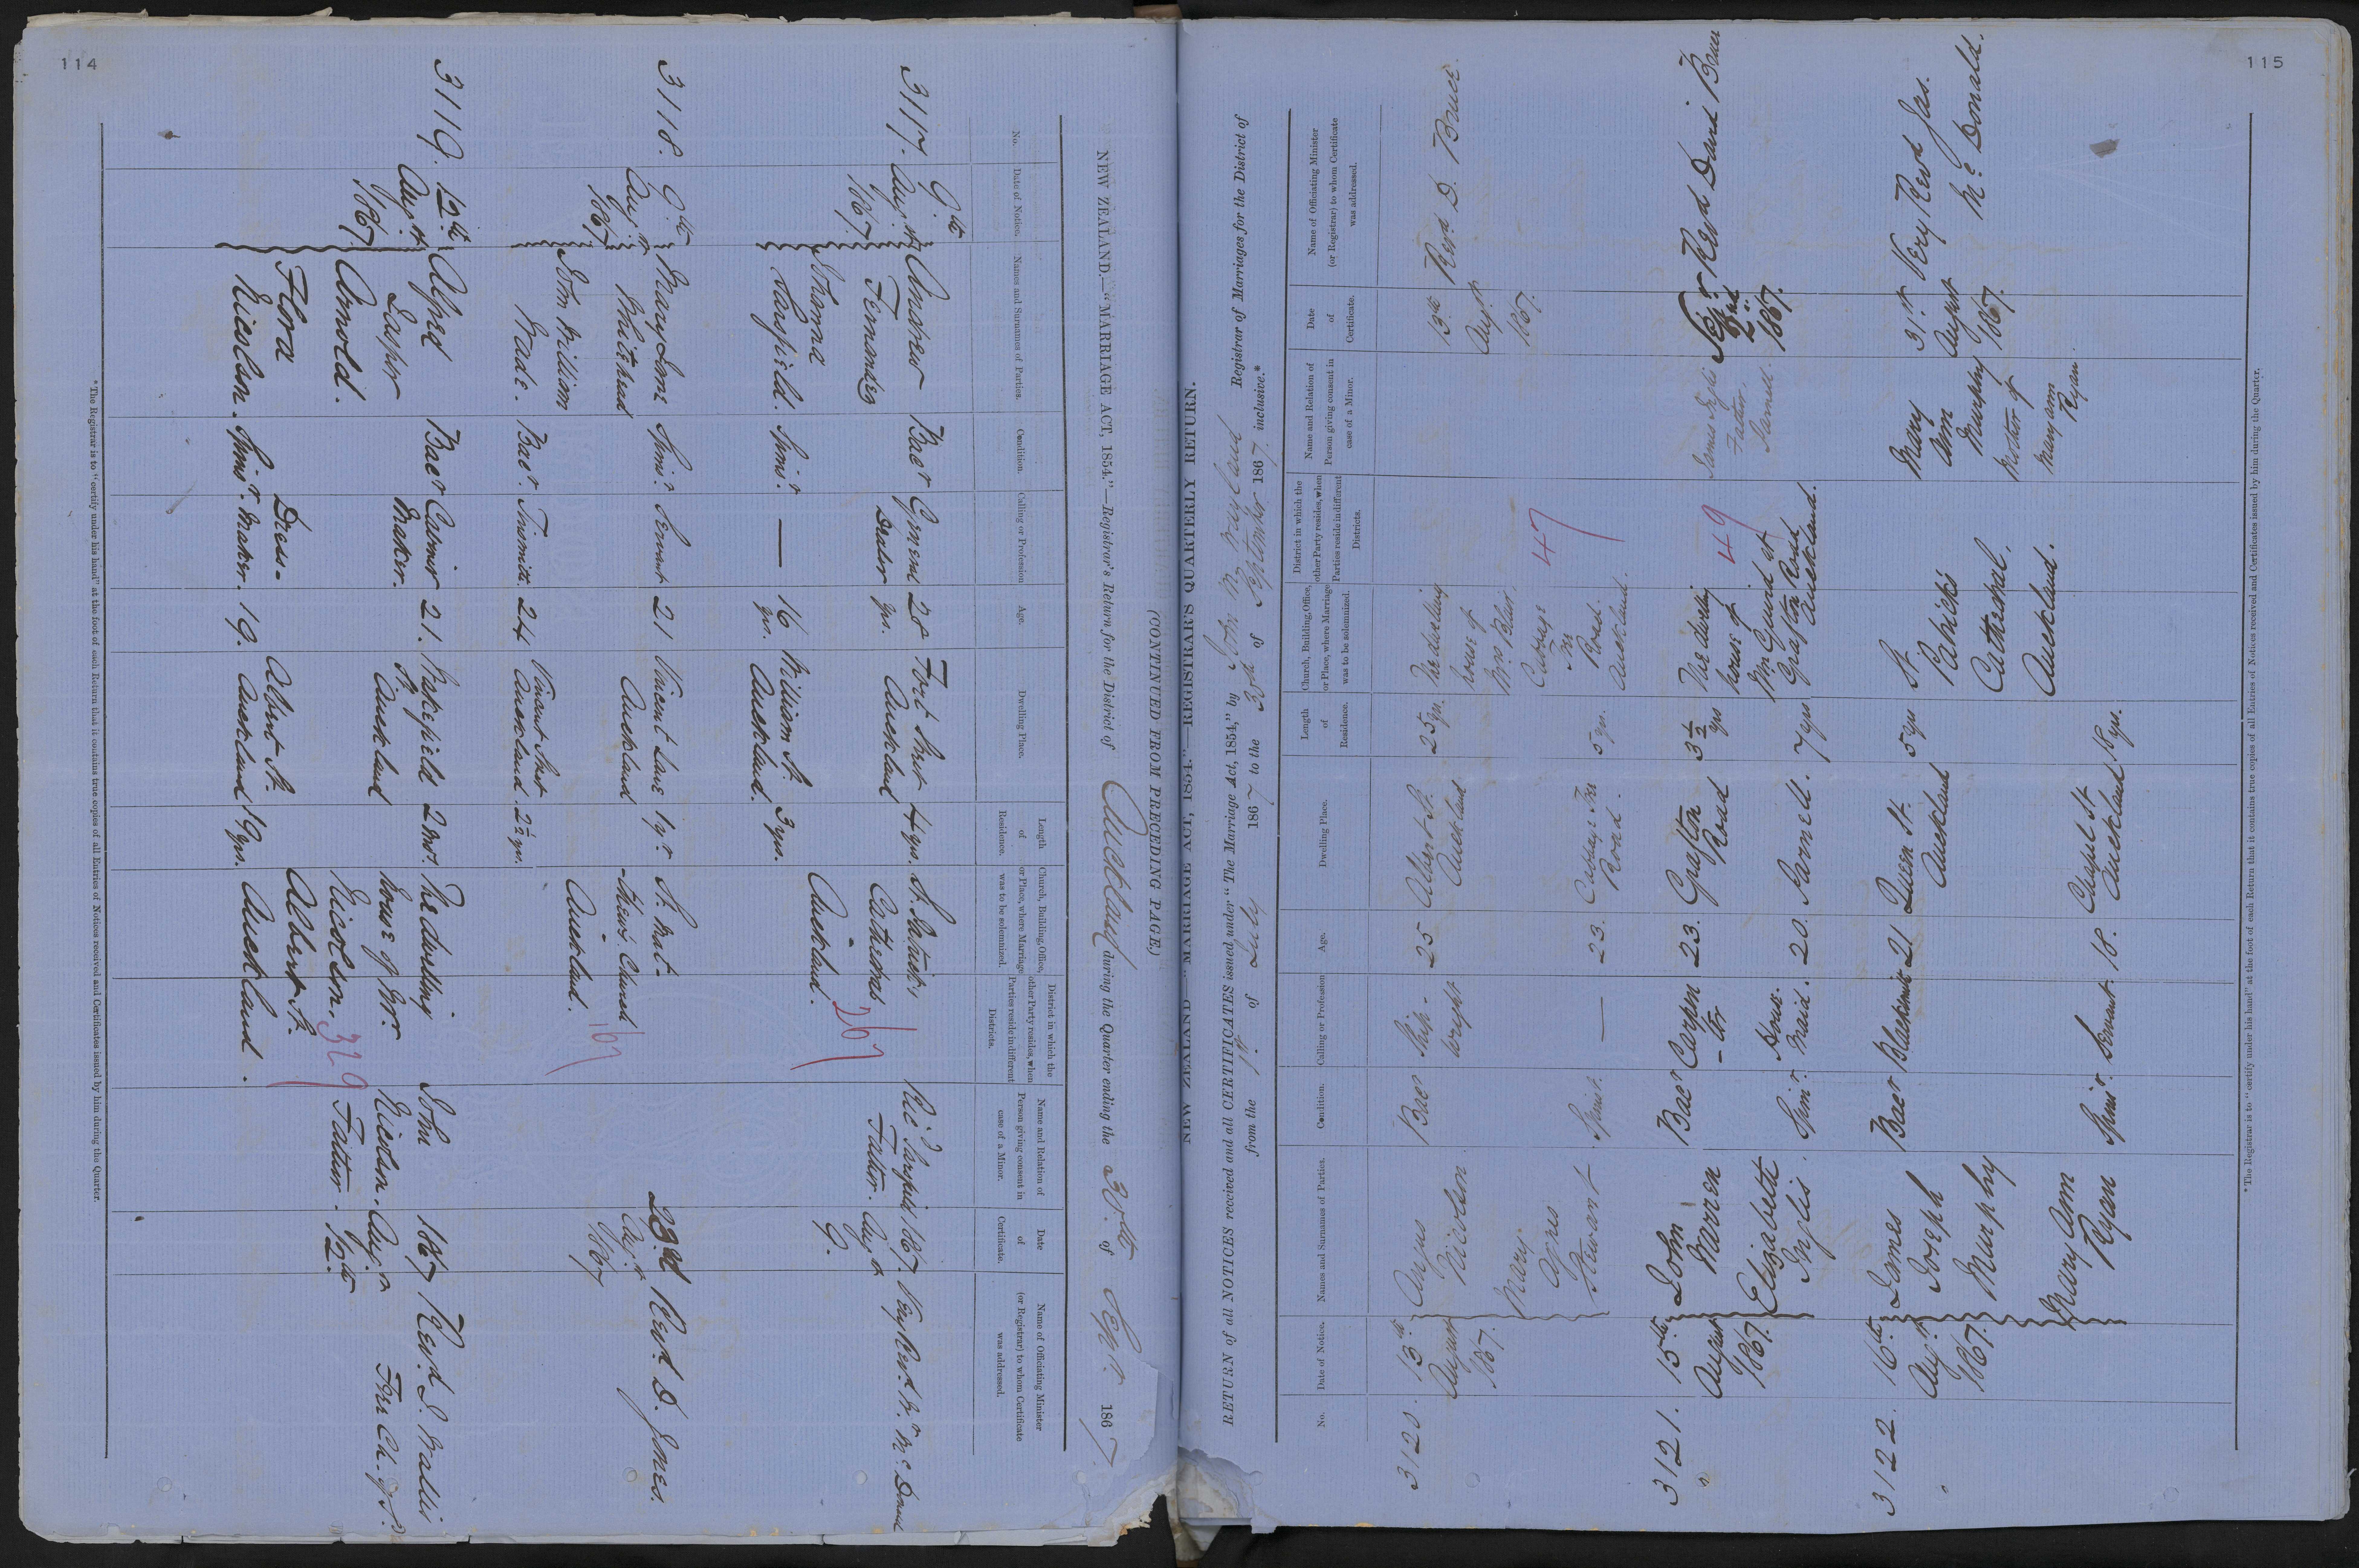 114
NEW ZEALAND.—"MARRIAGE ACT, 1854."—Registrar's Return for the District of Auckland during the Quarter ending the 30th of Sept. 1867.
(CONTINUED FROM PRECEDING PAGE.)
No.
Date of Notice.
Names and Surnames of Parties.
Condition.
Calling or Profession
Age.
Dwelling Place.
Length of Residence.
Church, Building, Office, or Place, where Marriage was to be solemnized.
District in which the other Party resides, when Parties reside in different Districts.
Name and Relation of Person giving consent in case of a Minor.
Date of Certificate.
Name of Officiating Minister (or Registrar) to whom Certificate was addressed.
3117. 9th Augst 1867.
Andrew Fernandez Bacr General Dealer 28 yrs. Fort Street Auckland 4 yrs. St. Patrick's Cathedral Auckland.
Thomas Sarsfield. Spinr. — 16 yrs. William St. Auckland. 3 yrs.
267
Ricd Sarsfield Father.
1867 Augst 9.
Very Revd
3118. 9th Augst 1867
Mary Jane Whitehead Spinr. Servant 21 Vincent Lane Auckland 1 yr. St. Mat-
-thew's Church Auckland.
John William Wade. Bacr. Tinsmith. 24 Vincent Street Auckland. 2½ yrs.
167
23rd Augst 1867
Revd. D. Jones.
3119. 12th Augst 1867
Alfred Casper Arnold. Bacr Cabinet Maker. 21. Wakefield St. Auckland 2 mos. The dwelling house of Mr. Nicolson. Albert St. Auckland.
Flora Nicolson. Spinr. Dress-Maker. 19. Albert St. Auckland 19 yrs.
329
John Nicolson. Father.
1867 Augst 12th
Revd. J. Wallis
Free Ch. of S.
* The Registrar is to "certify under his hand" at the foot of each Return that it contains true copies of all Entries of Notices received and Certificates issued by him during the Quarter.
115
NEW ZEALAND.—"MARRIAGE ACT, 1854."—REGISTRAR'S QUARTERLY RETURN.
RETURN of all NOTICES received and all CERTIFICATES issued under "The Marriage Act, 1854," by John N Wayland Registrar of Marriages for the District of
from the 1st of July 1867 to the 30th of September 1867 inclusive.*
No.
Date of Notice.
Names and Surnames of Parties.
Condition.
Calling or Profession
Age.
Dwelling Place.
Length of Residence.
Church, Building, Office, or Place, where Marriage was to be solemnized.
District in which the other Party resides, when Parties reside in different Districts.
Name and Relation of Person giving consent in case of a Minor.
Date of Certificate.
Name of Officiating Minister (or Registrar) to whom Certificate was addressed.
3120. 13th August 1867.
Angus Nicolson Bacr Ship-wright 25 Albert St. Auckland 25 yrs. The dwelling house of Mrs Cabbage Tree Road. Auckland.
Mary Agnes Stewart Spinst. — 23. Cabbage Tree Road. 5 yrs.
47
13th Augst. 1867.
Revd D. Bruce.
3121. 15th August 1867.
John Warren Bacr Carpen-ter 23. Grafton Road 3½ yrs The dwelling house of Mr Guard at Grafton Road Auckland.
Elizabeth Inglis. Spinr. House-Maid. 20. Parnell. 7 yrs
49
James Inglis Father. Parnell.
Sepr 2nd 1867.
Revd David Bruce
3122. 16th Augst 1867.
James Joseph Murphy Bacr Blacksmith 21 Queen St. Auckland 5 yrs St. Patrick's Cathedral. Auckland.
Mary Ann Ryan Spinsr. Servant. 18. Chapel St Auckland 18 yrs.
Mary Ann Murphy Mother of Mary Ann Ryan.
31st August 1867.
Very Revd Jas. McDonald.
* The Registrar is to "certify under his hand" at the foot of each Return that it contains true copies of all Entries of Notices received and Certificates issued by him during the Quarter.